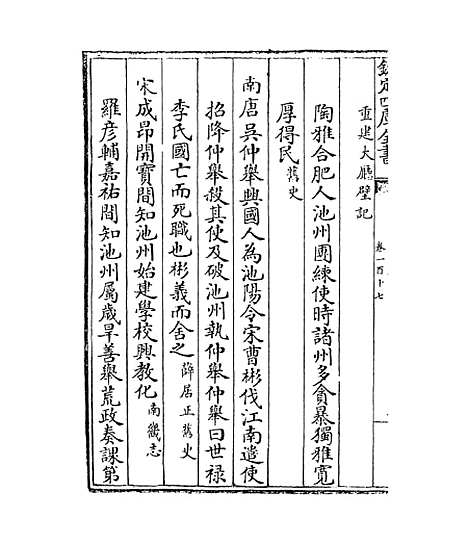 欽定四庫全書
卷一百十七
重建大廳壁記
陶雅合肥人池州團練使時諸州多貪暴獨雅寛
厚得民舊史
南唐吳仲舉興國人為池陽令宋曹彬伐江南遣使
招降仲舉殺其使及破池州執仲舉仲舉曰世禄
李氏國亡而死職也彬義而舍之薛居正舊史
宋成昂開寶間知池州始建學校興教化南畿志
羅彦輔嘉祐間知池州屬歲旱善舉荒政奏課第